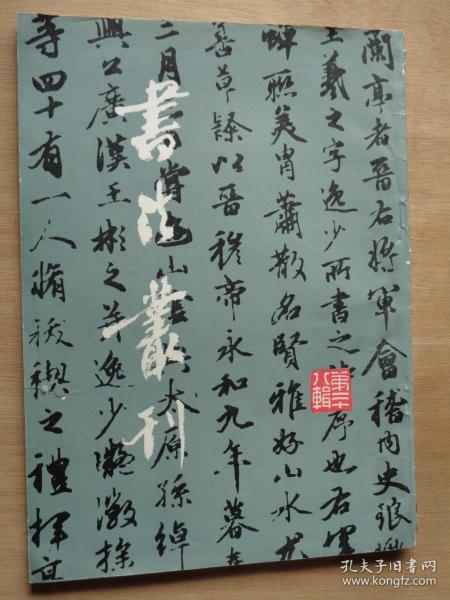 書法叢刊
第二十
八輯
蘭亭者晉右將軍會稽内史琅
王羲之字逸少所書之序也右軍
蟬聯美胄蕭散名賢雅好山水尤
善草隸以晉穆帝永和九年暮春
月山太原孫綽
興公廣漢王彬之并逸少凝徽操
等四十有一人脩祓禊之禮揮
孔夫子旧书网
www.kongfz.com